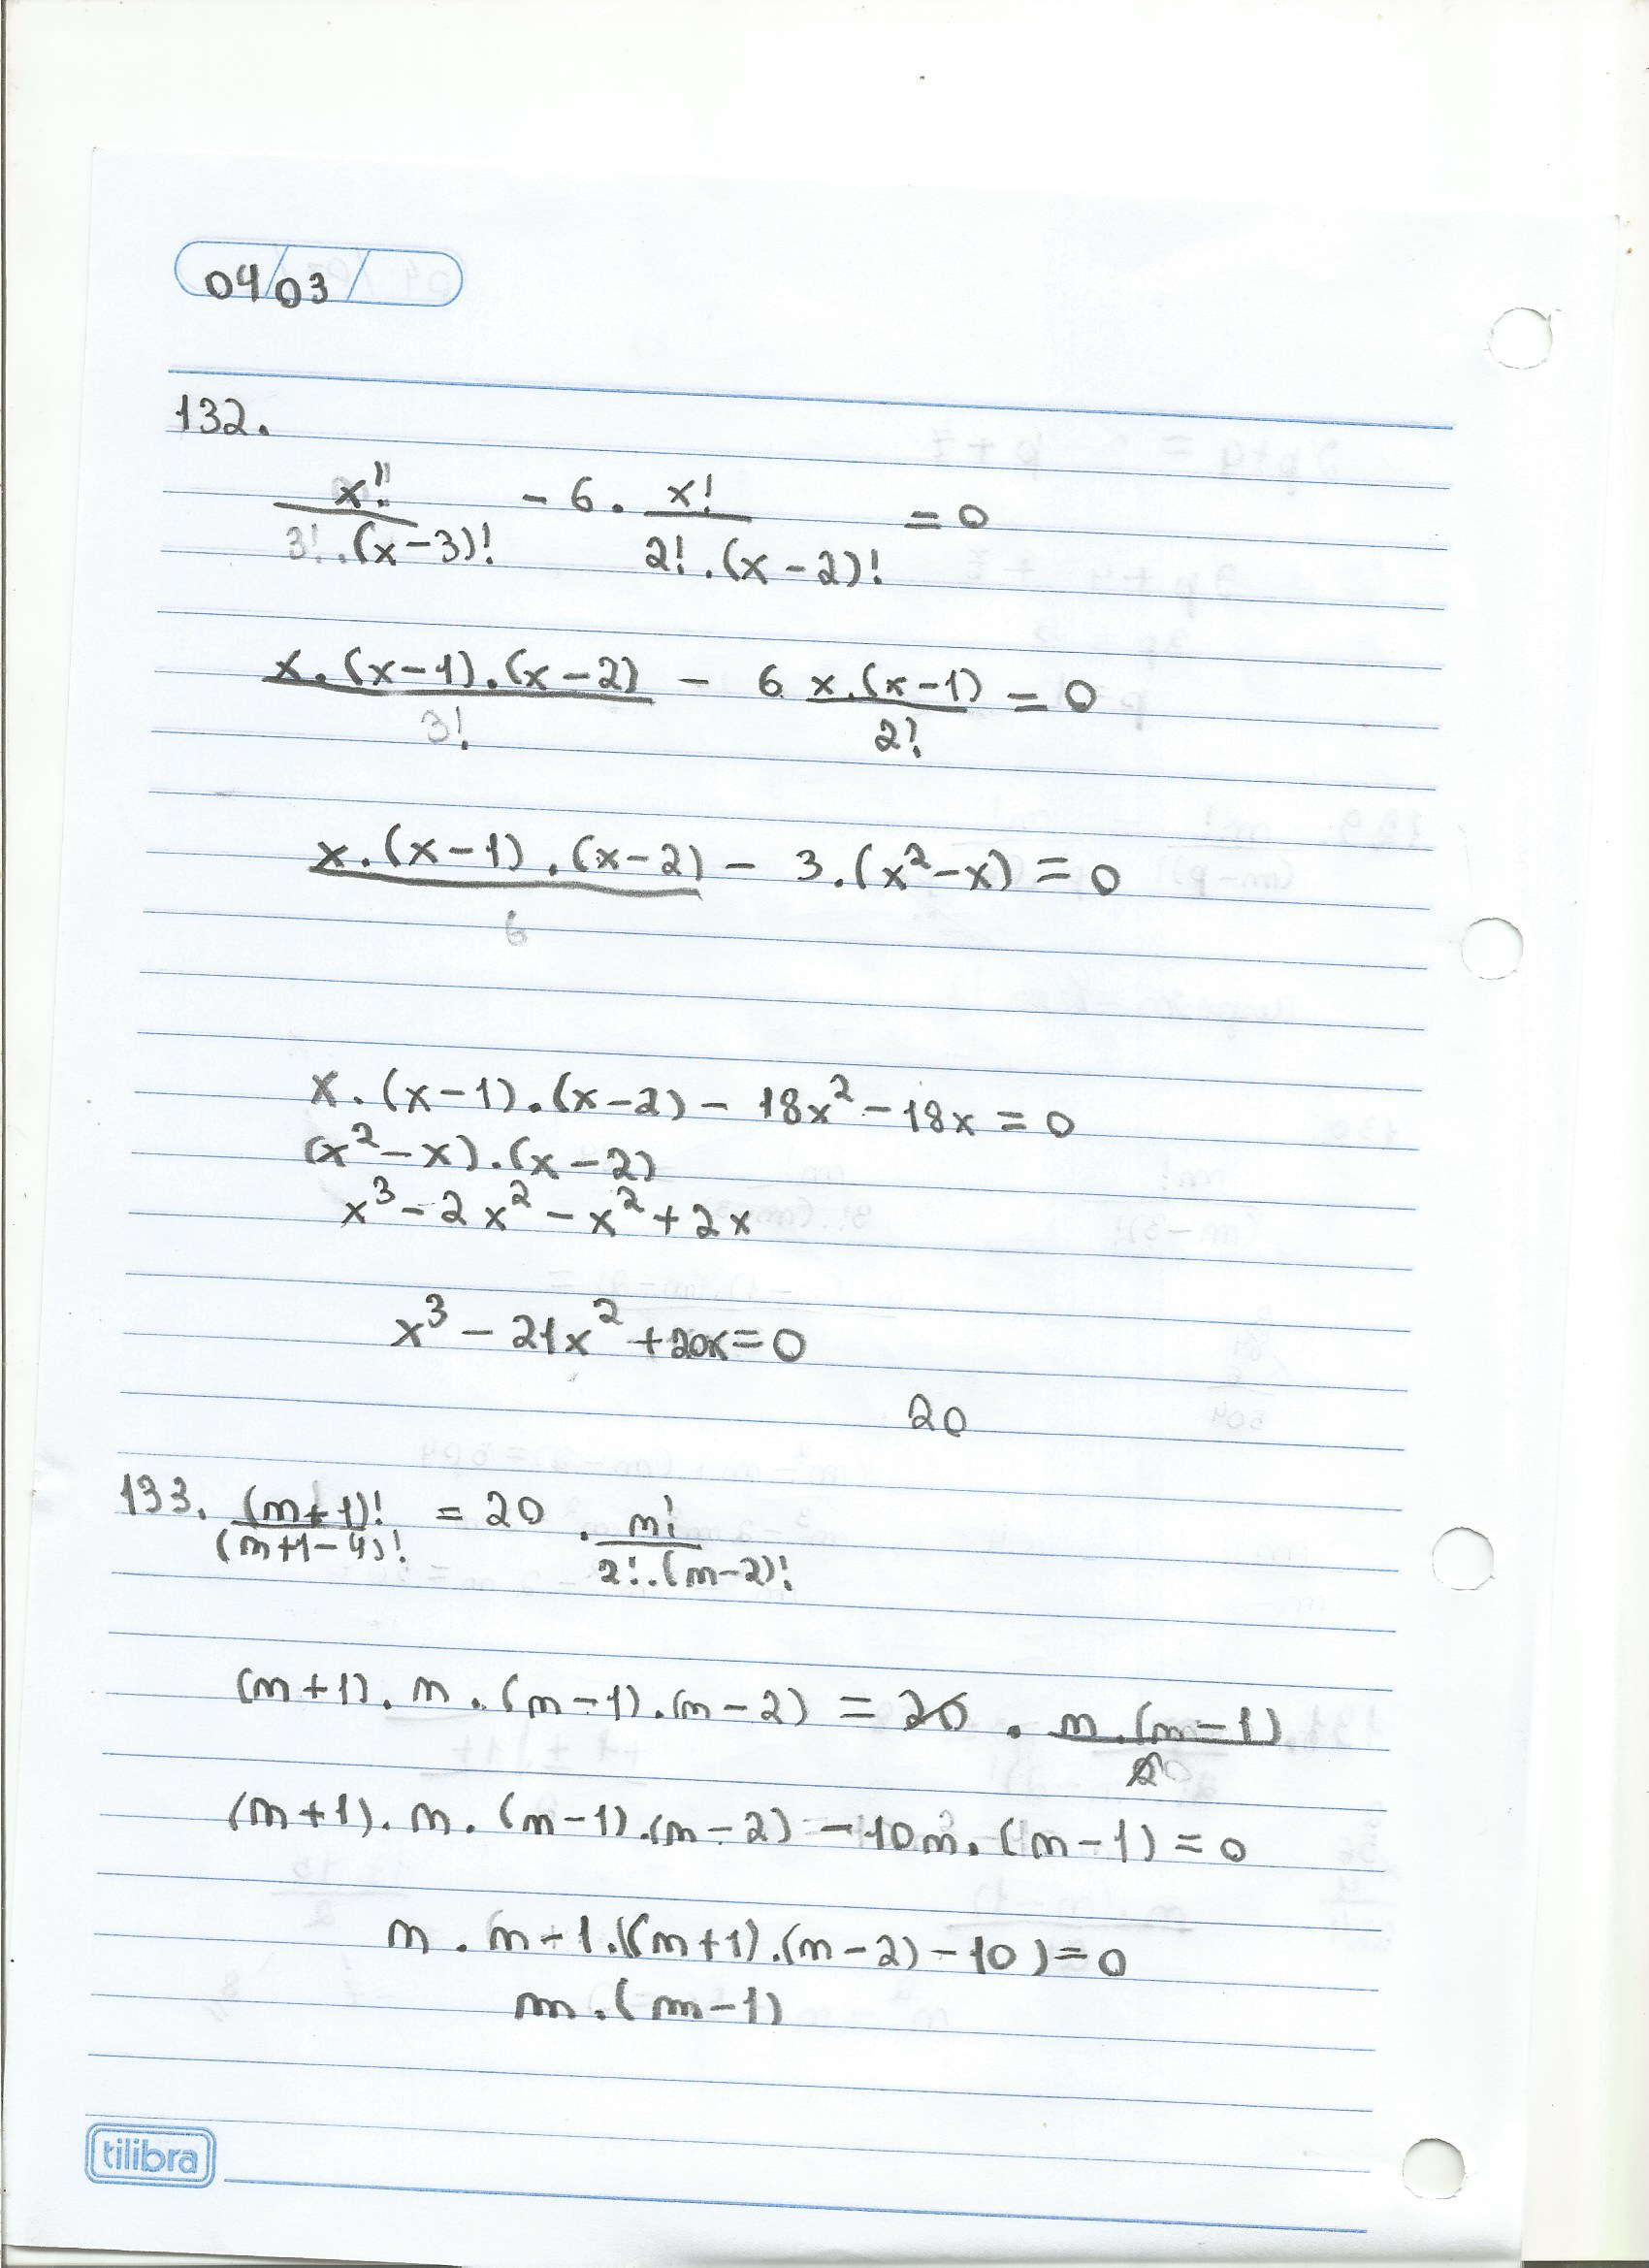 04/03
132.
x!/(3!.(x-3)!) - 6. x!/(2!.(x-2)!) = 0
x.(x-1).(x-2)/3! - 6 x.(x-1)/2! = 0
x.(x-1).(x-2)/6 - 3.(x²-x) = 0
x.(x-1).(x-2) - 18x² - 18x = 0
(x²-x).(x-2)
x³-2x²-x²+2x
x³ - 21x² + 20x = 0
20
133. (m+1)!/(m+1-4)! = 20 . m!/(2!.(m-2)!)
(m+1).m.(m-1).(m-2) = 20 . m.(m-1)/2
(m+1).m.(m-1).(m-2) - 10m.(m-1) = 0
m.m-1.((m+1).(m-2)-10) = 0
m.(m-1)
tilibra